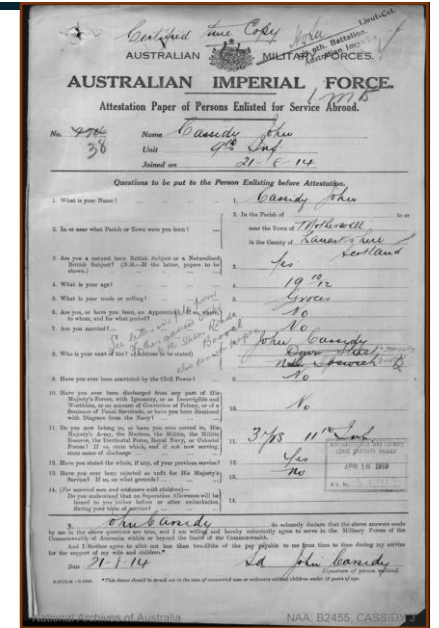 Certified true Copy
Lieut-Col.
9th. Battalion.
Australian Imperial
AUSTRALIAN MILITARY FORCES.
AUSTRALIAN IMPERIAL FORCE.
Attestation Paper of Persons Enlisted for Service Abroad.
No. 38 Name Cassidy John
Unit 9th Inf
Joined on 21-8-14
Questions to be put to the Person Enlisting before Attestation.
1. What is your Name? 1. Cassidy John
2. In or near what Parish or Town were you born? 2. In the Parish of in or
near the Town of Motherwell
in the County of Lanarkshire
Scotland
3. Are you a natural born British Subject or a Naturalised
British Subject? (N.B.—If the latter, papers to be
shown.) Yes
4. What is your age? 4. 19 10/12
5. What is your trade or calling? 5. Grocer
6. Are you, or have you been, an Apprentice? If so, where,
to whom, and for what period? 6. No
7. Are you married? 7. No
8. Who is your next of kin? (Address to be stated) John Cassidy
Down Street
North Ipswich Q
9. Have you ever been convicted by the Civil Power? 9. No
10. Have you ever been discharged from any part of His
Majesty's Forces, with Ignominy, or as Incorrigible and
Worthless, or on account of Conviction of Felony, or of a
Sentence of Penal Servitude, or have you been dismissed
with Disgrace from the Navy? 10. No
11. Do you now belong to, or have you ever served in, His
Majesty's Army, the Marines, the Militia, the Militia
Reserve, the Territorial Force, Royal Navy, or Colonial
Forces? If so, state which, and if not now serving,
state cause of discharge 11. 11th Inf
12. Have you stated the whole, if any, of your previous service? 12. Yes
13. Have you ever been rejected as unfit for His Majesty's
Service? If so, on what grounds? 13. No
APR 19
14. (For married men and widowers with children)—
Do you understand that no Separation Allowance will be
issued to you either before or after embarkation
during your term of service? 14.
John Cassidy do solemnly declare that the above answers made
by me to the above questions are true, and I am willing and hereby voluntarily agree to serve in the Military Forces of the
Commonwealth of Australia within or beyond the limits of the Commonwealth.
And I further agree to allot not less than two-fifths of the pay payable to me from time to time during my service
for the support of my wife and children.*
Date 21-8-14 Sd John Cassidy
Signature of person enlisted.
*This clause should be struck out in the case of unmarried men or widowers without children under 18 years of age.
National Archives of Australia NAA: B2455, CASSIDY J